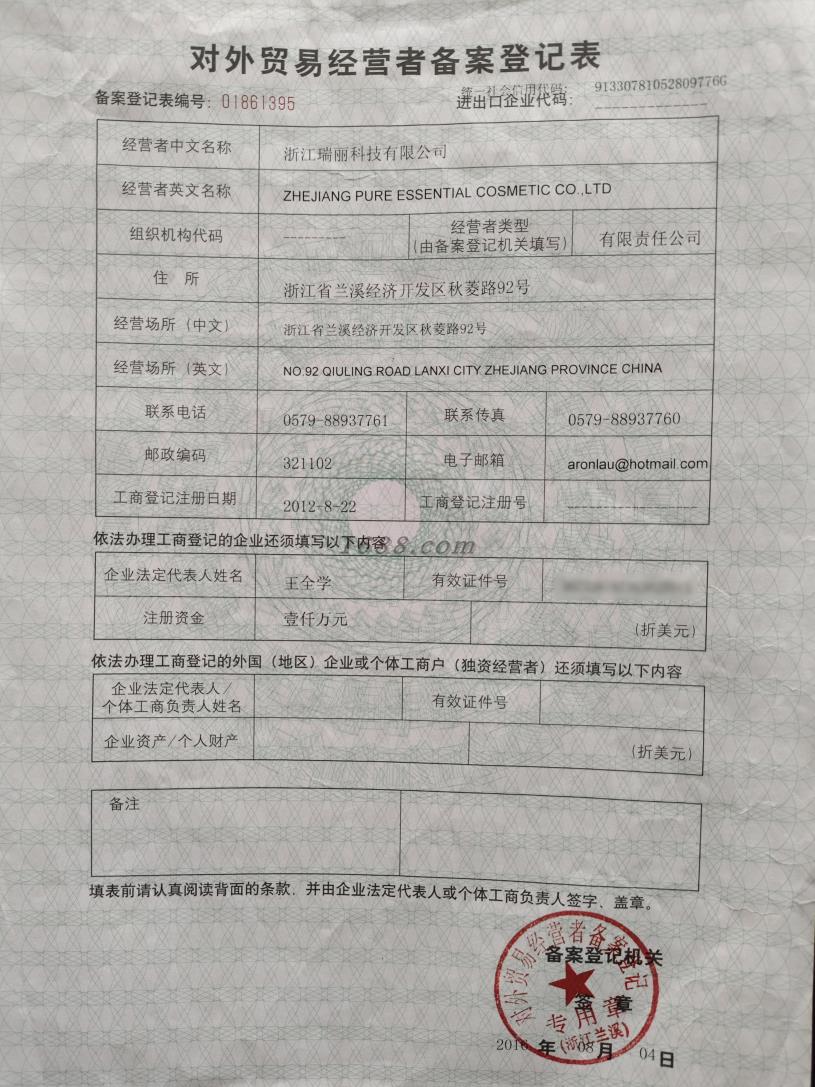 对外贸易经营者备案登记表
备案登记表编号: 01861395
统一社会信用代码: 91330781052809776G
进出口企业代码:
经营者中文名称 浙江瑞丽科技有限公司
经营者英文名称 ZHEJIANG PURE ESSENTIAL COSMETIC CO.,LTD
组织机构代码 --------- 经营者类型 (由备案登记机关填写) 有限责任公司
住 所 浙江省兰溪经济开发区秋菱路92号
经营场所（中文） 浙江省兰溪经济开发区秋菱路92号
经营场所（英文） NO.92 QIULING ROAD LANXI CITY ZHEJIANG PROVINCE CHINA
联系电话 0579-88937761 联系传真 0579-88937760
邮政编码 321102 电子邮箱 aronlau@hotmail.com
工商登记注册日期 2012-8-22 工商登记注册号 ------------------
依法办理工商登记的企业还须填写以下内容
1688.com
企业法定代表人姓名 王全学 有效证件号
注册资金 壹仟万元 (折美元)
依法办理工商登记的外国（地区）企业或个体工商户（独资经营者）还须填写以下内容
企业法定代表人/
个体工商负责人姓名 有效证件号
企业资产/个人财产 (折美元)
备注
填表前请认真阅读背面的条款，并由企业法定代表人或个体工商负责人签字、盖章。
对外贸易经营者备案登记
备案登记机关
签 章
专用章
(浙江兰溪)
2016 年 08 月 04 日